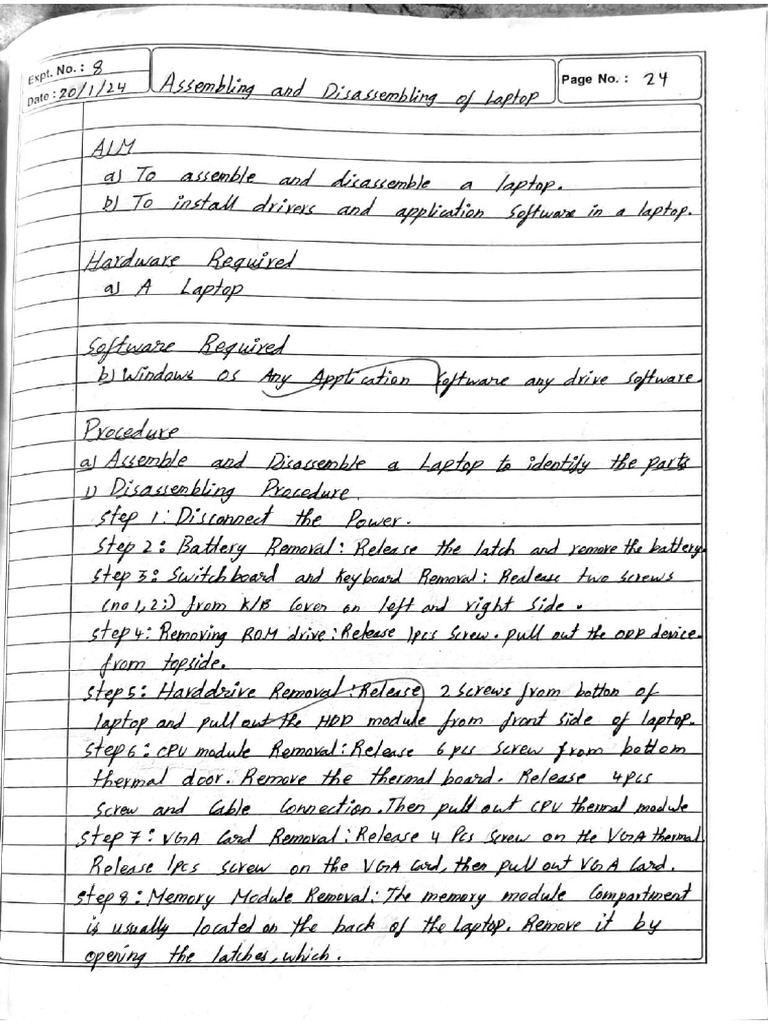 Expt. No. : 8
Date : 20/1/24
Assembling and Disassembling of Laptop
Page No. : 24
AIM
a) To assemble and disassemble a laptop.
b) To install drivers and application software in a laptop.
Hardware Required
a) A Laptop
Software Required
b) Windows OS Any Application Software any drive software.
Procedure
a) Assemble and Disassemble a Laptop to identify the parts
1) Disassembling Procedure.
Step 1: Disconnect the Power.
Step 2: Battery Removal: Release the latch and remove the battery.
Step 3: Switch board and Keyboard Removal: Realease two screws
(no 1, 2:) from K/B Cover on left and right side.
Step 4: Removing ROM drive: Release 1pcs Screw. pull out the ODD device.
from topside.
Step 5: Harddrive Removal: Release 2 Screws from botton of
laptop and pull out the HDD module from front side of laptop.
Step 6: CPU module Removal: Release 6 pcs screw from bottom
thermal door. Remove the thermal board. Release 4 pcs
Screw and Cable Connection. Then pull out CPU thermal module
Step 7: VGA Card Removal: Release 4 Pcs Screw on the VGA thermal
Release 1pcs screw on the VGA Card, then pull out VGA Card.
Step 8: Memory Module Removal: The memory module Compartment
is usually located on the back of the Laptop. Remove it by
opening the latches, which.